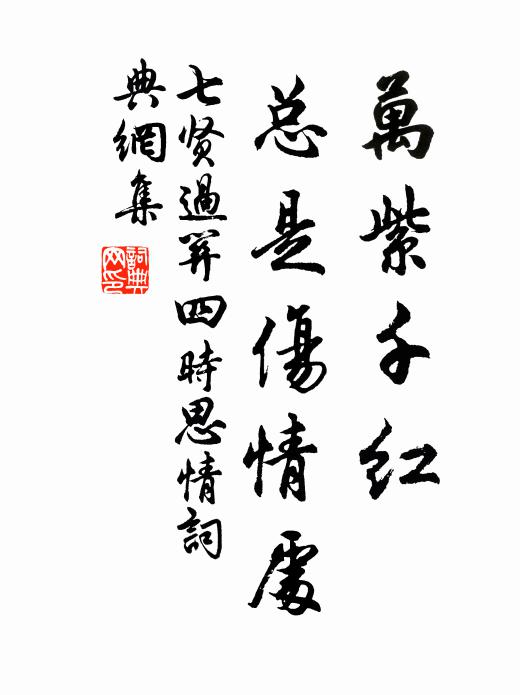 萬紫千红
总是傷情處
七贤過关四時思情詞
典網集
詞典
网印